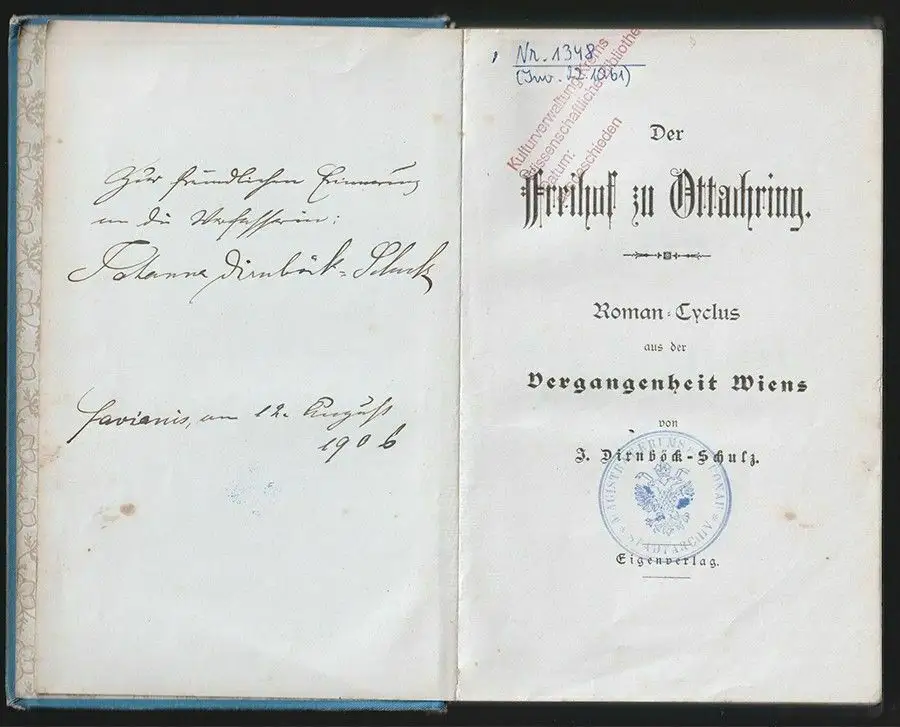 Zur freundlichen Erinnerung
an die Verfasserin:
Johanna Dirnböck-Schulz
Favianis, am 12. August
1906
Nr. 1348
(Inv. 22 1961)
Kulturverwaltung Krems
Wissenschaftliche Bibliothe
Datum:
ausgeschieden
Der
Freihof zu Ottakring.
Roman-Cyclus
aus der
Vergangenheit Wiens
von
J. Dirnböck-Schulz.
MAGISTRAT KREMS DONAU
STADTARCHIV
Eigenverlag.